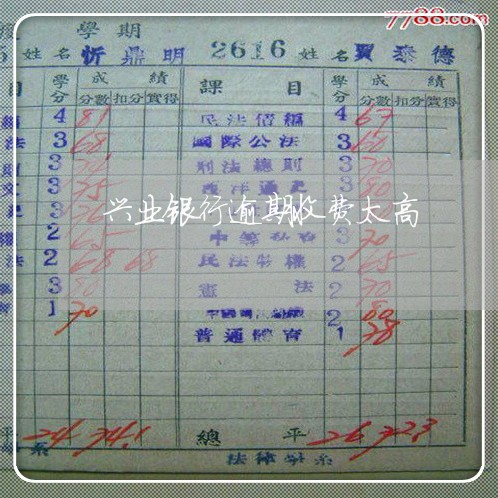 7788.com
學期
姓名 忻鼎明 2616 姓名 賈泰德
目 學分 成績 課目 學分 成績
分數 扣分 實得 分數 扣分 實得
4 81 民法債編 4 67
法 3 68 國際公法 3 60
3 刑法總則 3 70
3 75 西洋通史 3 80
3
兴业银行逾期收费太高
2 65 3 70
法 2 68 68 民法物權 2 65
3 80 憲法 2 70
1 70 2 80
普通體育 1 78
平 24 74.1 總平 26 72.3
系 法律學系